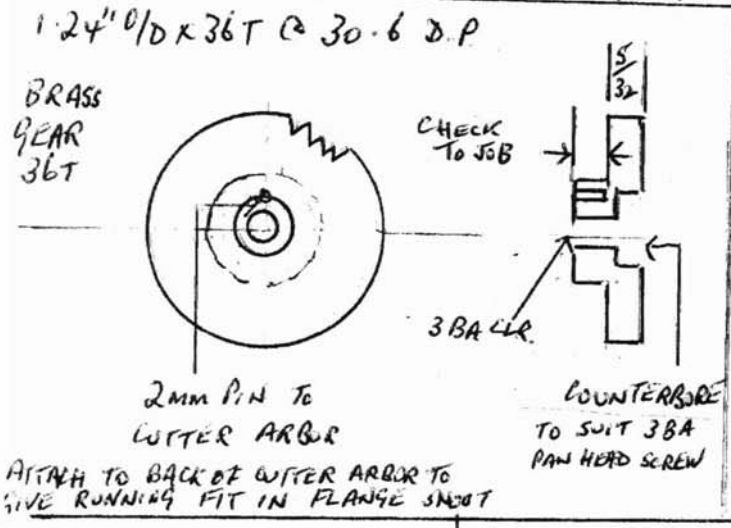 1.24" O/D x 36T @ 30.6 D.P
BRASS
GEAR
36T
CHECK
TO JOB
5
32
3BA CLR.
2MM PIN TO
CUTTER ARBOR
COUNTERBORE
TO SUIT 3BA
PAN HEAD SCREW
ATTACH TO BACK OF CUTTER ARBOR TO
GIVE RUNNING FIT IN FLANGE